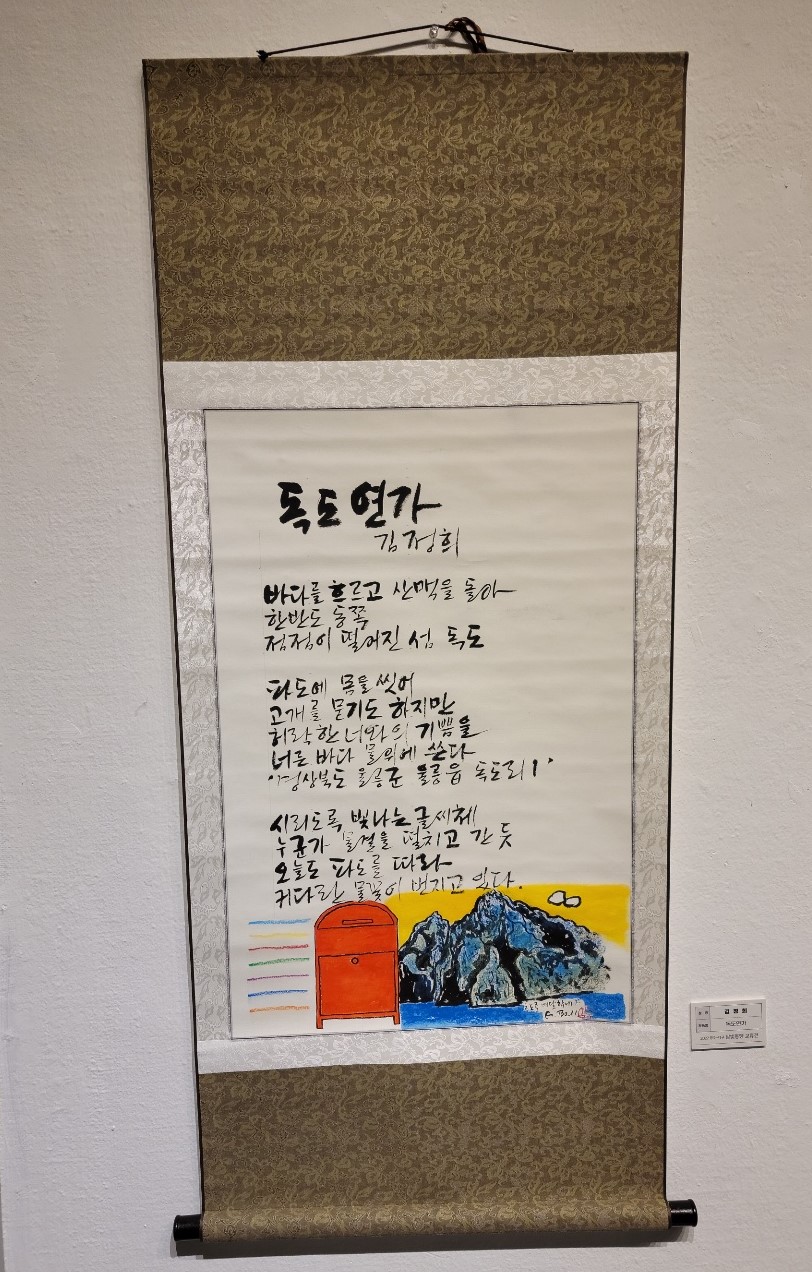 독도연가
김정희
바다를 흐르고 산맥을 돌아
한반도 동쪽
점점이 떨어진 섬 독도
파도에 몸을 씻어
고개를 묻기도 하지만
허락한 너와의 기쁨을
너른 바다 물위에 쓴다
'경상북도 울릉군 울릉읍 독도리 1'
시리도록 빛나는 글씨체
누군가 물결을 떨치고 간 듯
오늘도 파도를 따라
커다란 물꽃이 번지고 있다.
김정희
독도연가